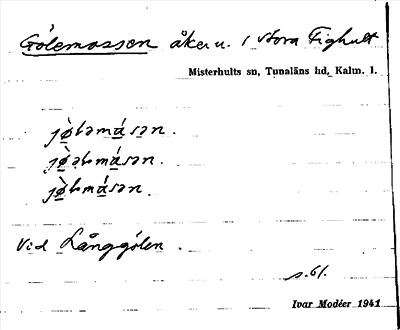 Gölemossen åker u. / Stora Fighult
Misterhults sn, Tunaläns hd, Kalm. l.
jø̀ləmásən.
jø̀ələmásən.
jø̀ləmásən.
Vid Långgölen.
s. 61.
Ivar Modéer 1941